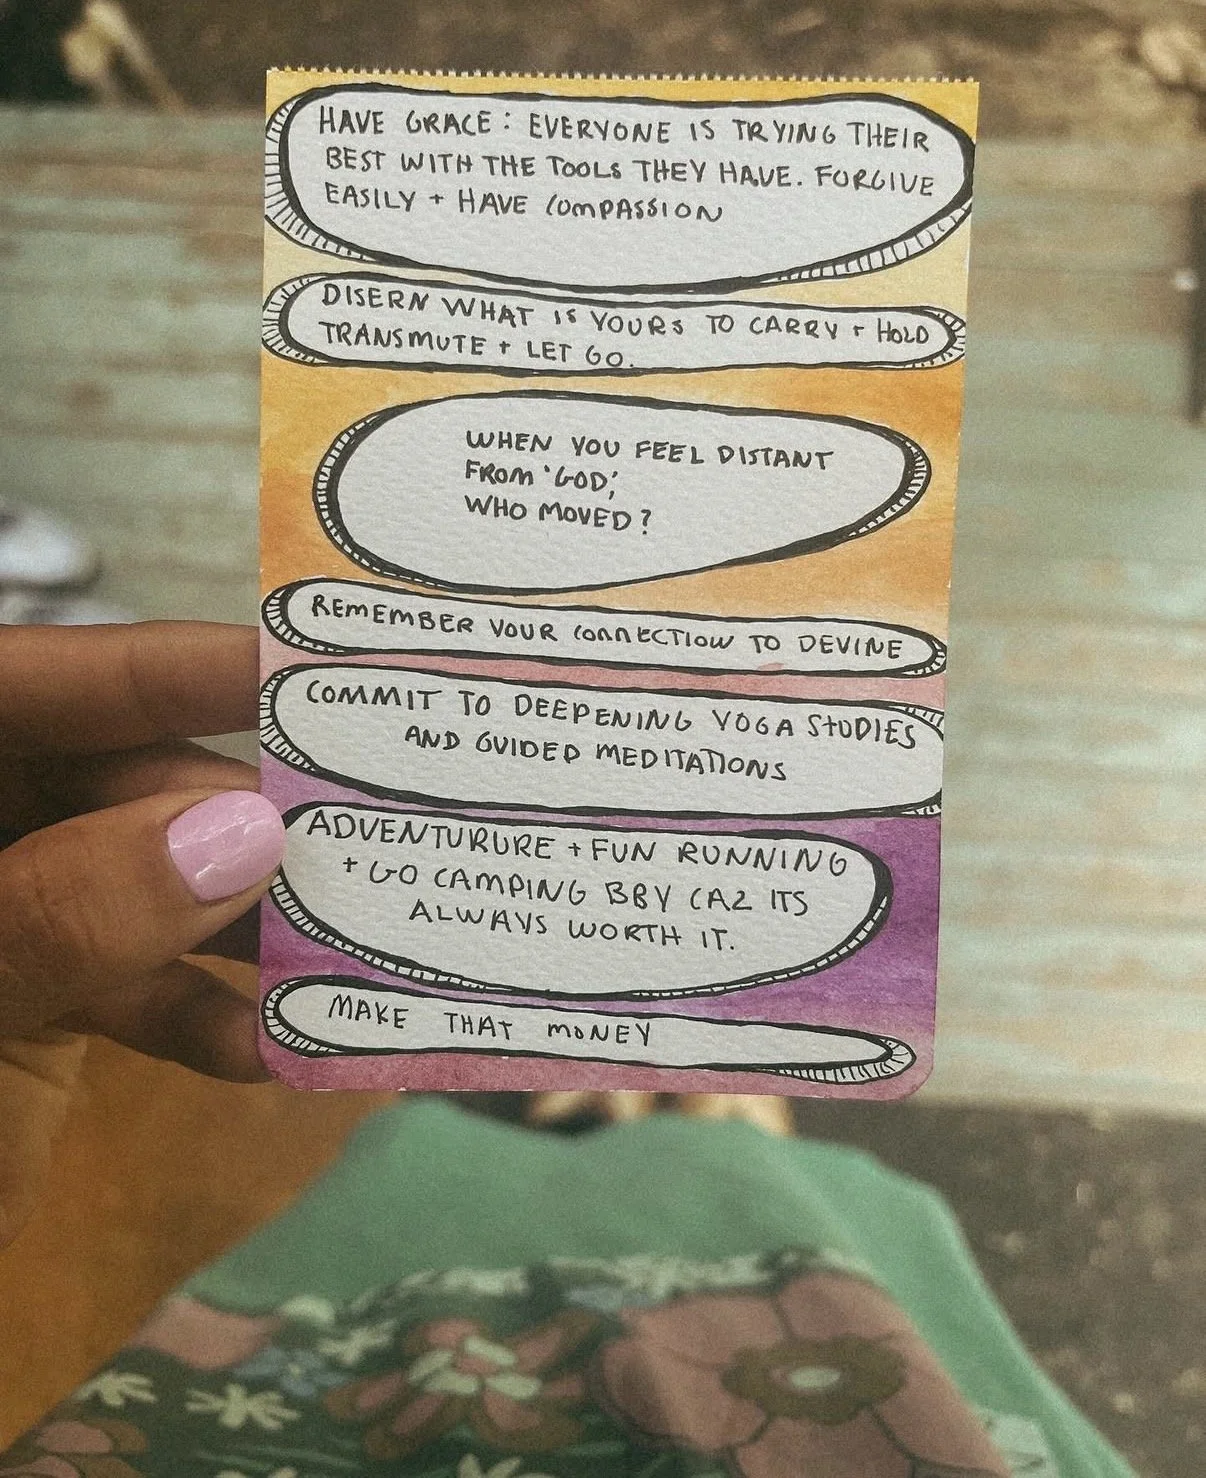 HAVE GRACE: EVERYONE IS TRYING THEIR
BEST WITH THE TOOLS THEY HAVE. FORGIVE
EASILY + HAVE COMPASSION
DISERN WHAT IS YOURS TO CARRY + HOLD
TRANSMUTE + LET GO.
WHEN YOU FEEL DISTANT
FROM 'GOD',
WHO MOVED?
REMEMBER YOUR CONNECTION TO DEVINE
COMMIT TO DEEPENING YOGA STUDIES
AND GUIDED MEDITATIONS
ADVENTURURE + FUN RUNNING
+ GO CAMPING BBY CAZ ITS
ALWAYS WORTH IT.
MAKE THAT MONEY